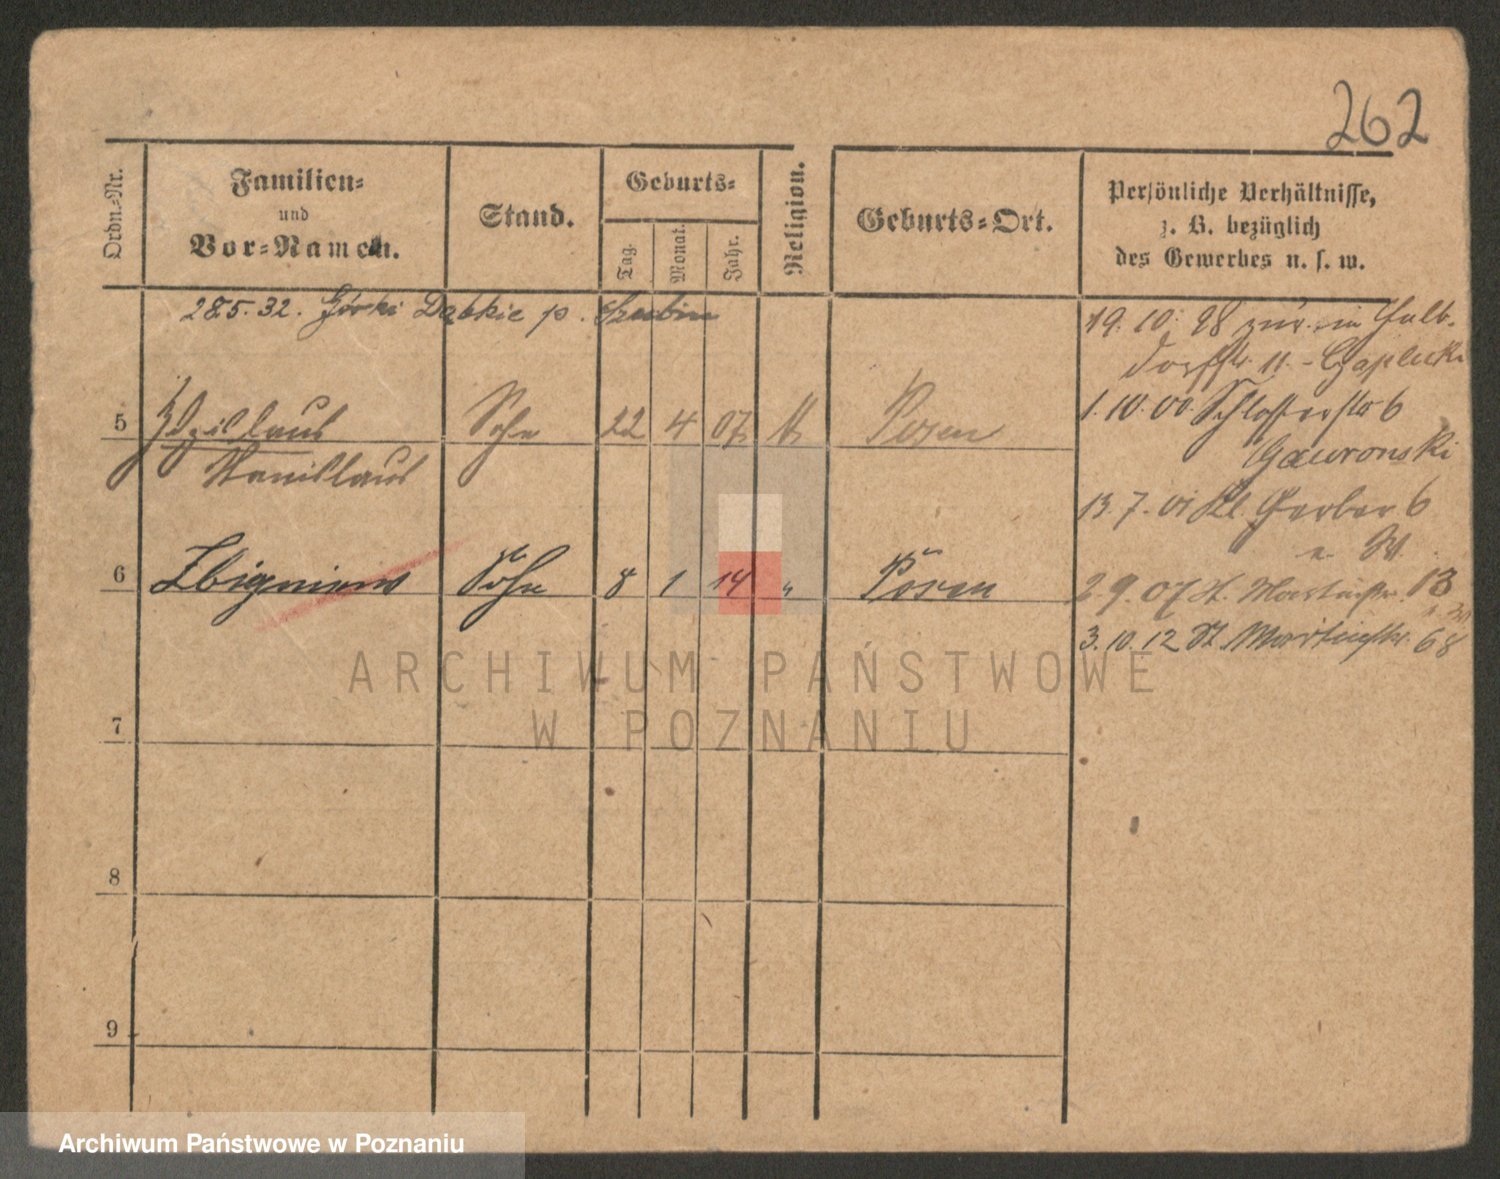 262
Ordn.-Nr.
Familien-
und
Vor-Namen.
Stand.
Geburts-
Tag.
Monat.
Jahr.
Religion.
Geburts-Ort.
Persönliche Verhältnisse,
z. B. bezüglich
des Gewerbes u. s. w.
28.5.32. Górki Dąbkie p. Szubin
19. 10. 98 zur.
11. - Czaplicki
5 Sohn 22 4 07 Posen
Stanislaus
1. 10. 00. Schlosserstr 6
Gawronski
13. 7. 01 Kl. Gerber 6
6 Zbigniew Sohn 8 1 14 " Posen
2. 9. 07 St. Martinstr. 13
3. 10. 12 St. Martinstr. 68
7
8
9
ARCHIWUM PAŃSTWOWE
W POZNANIU
Archiwum Państwowe w Poznaniu